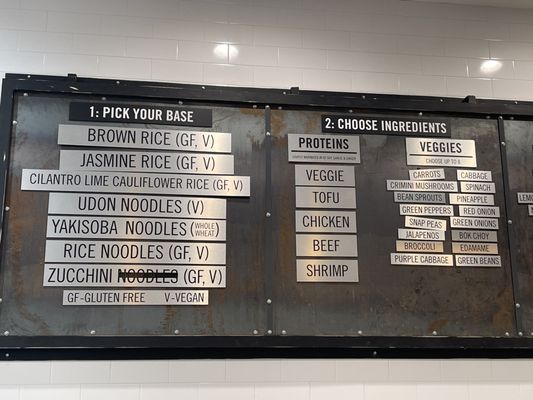 1: PICK YOUR BASE
BROWN RICE (GF, V)
JASMINE RICE (GF, V)
CILANTRO LIME CAULIFLOWER RICE (GF, V)
UDON NOODLES (V)
YAKISOBA NOODLES (WHOLE WHEAT)
RICE NOODLES (GF, V)
ZUCCHINI NOODLES (GF, V)
GF-GLUTEN FREE V-VEGAN
2: CHOOSE INGREDIENTS
PROTEINS
VEGGIE
TOFU
CHICKEN
BEEF
SHRIMP
VEGGIES
CHOOSE UP TO
CARROTS
CRIMINI MUSHROOMS
BEAN SPROUTS
GREEN PEPPERS
SNAP PEAS
JALAPENOS
BROCCOLI
PURPLE CABBAGE
CABBAGE
SPINACH
PINEAPPLE
RED ONION
GREEN ONIONS
BOK CHOY
EDAMAME
GREEN BEANS